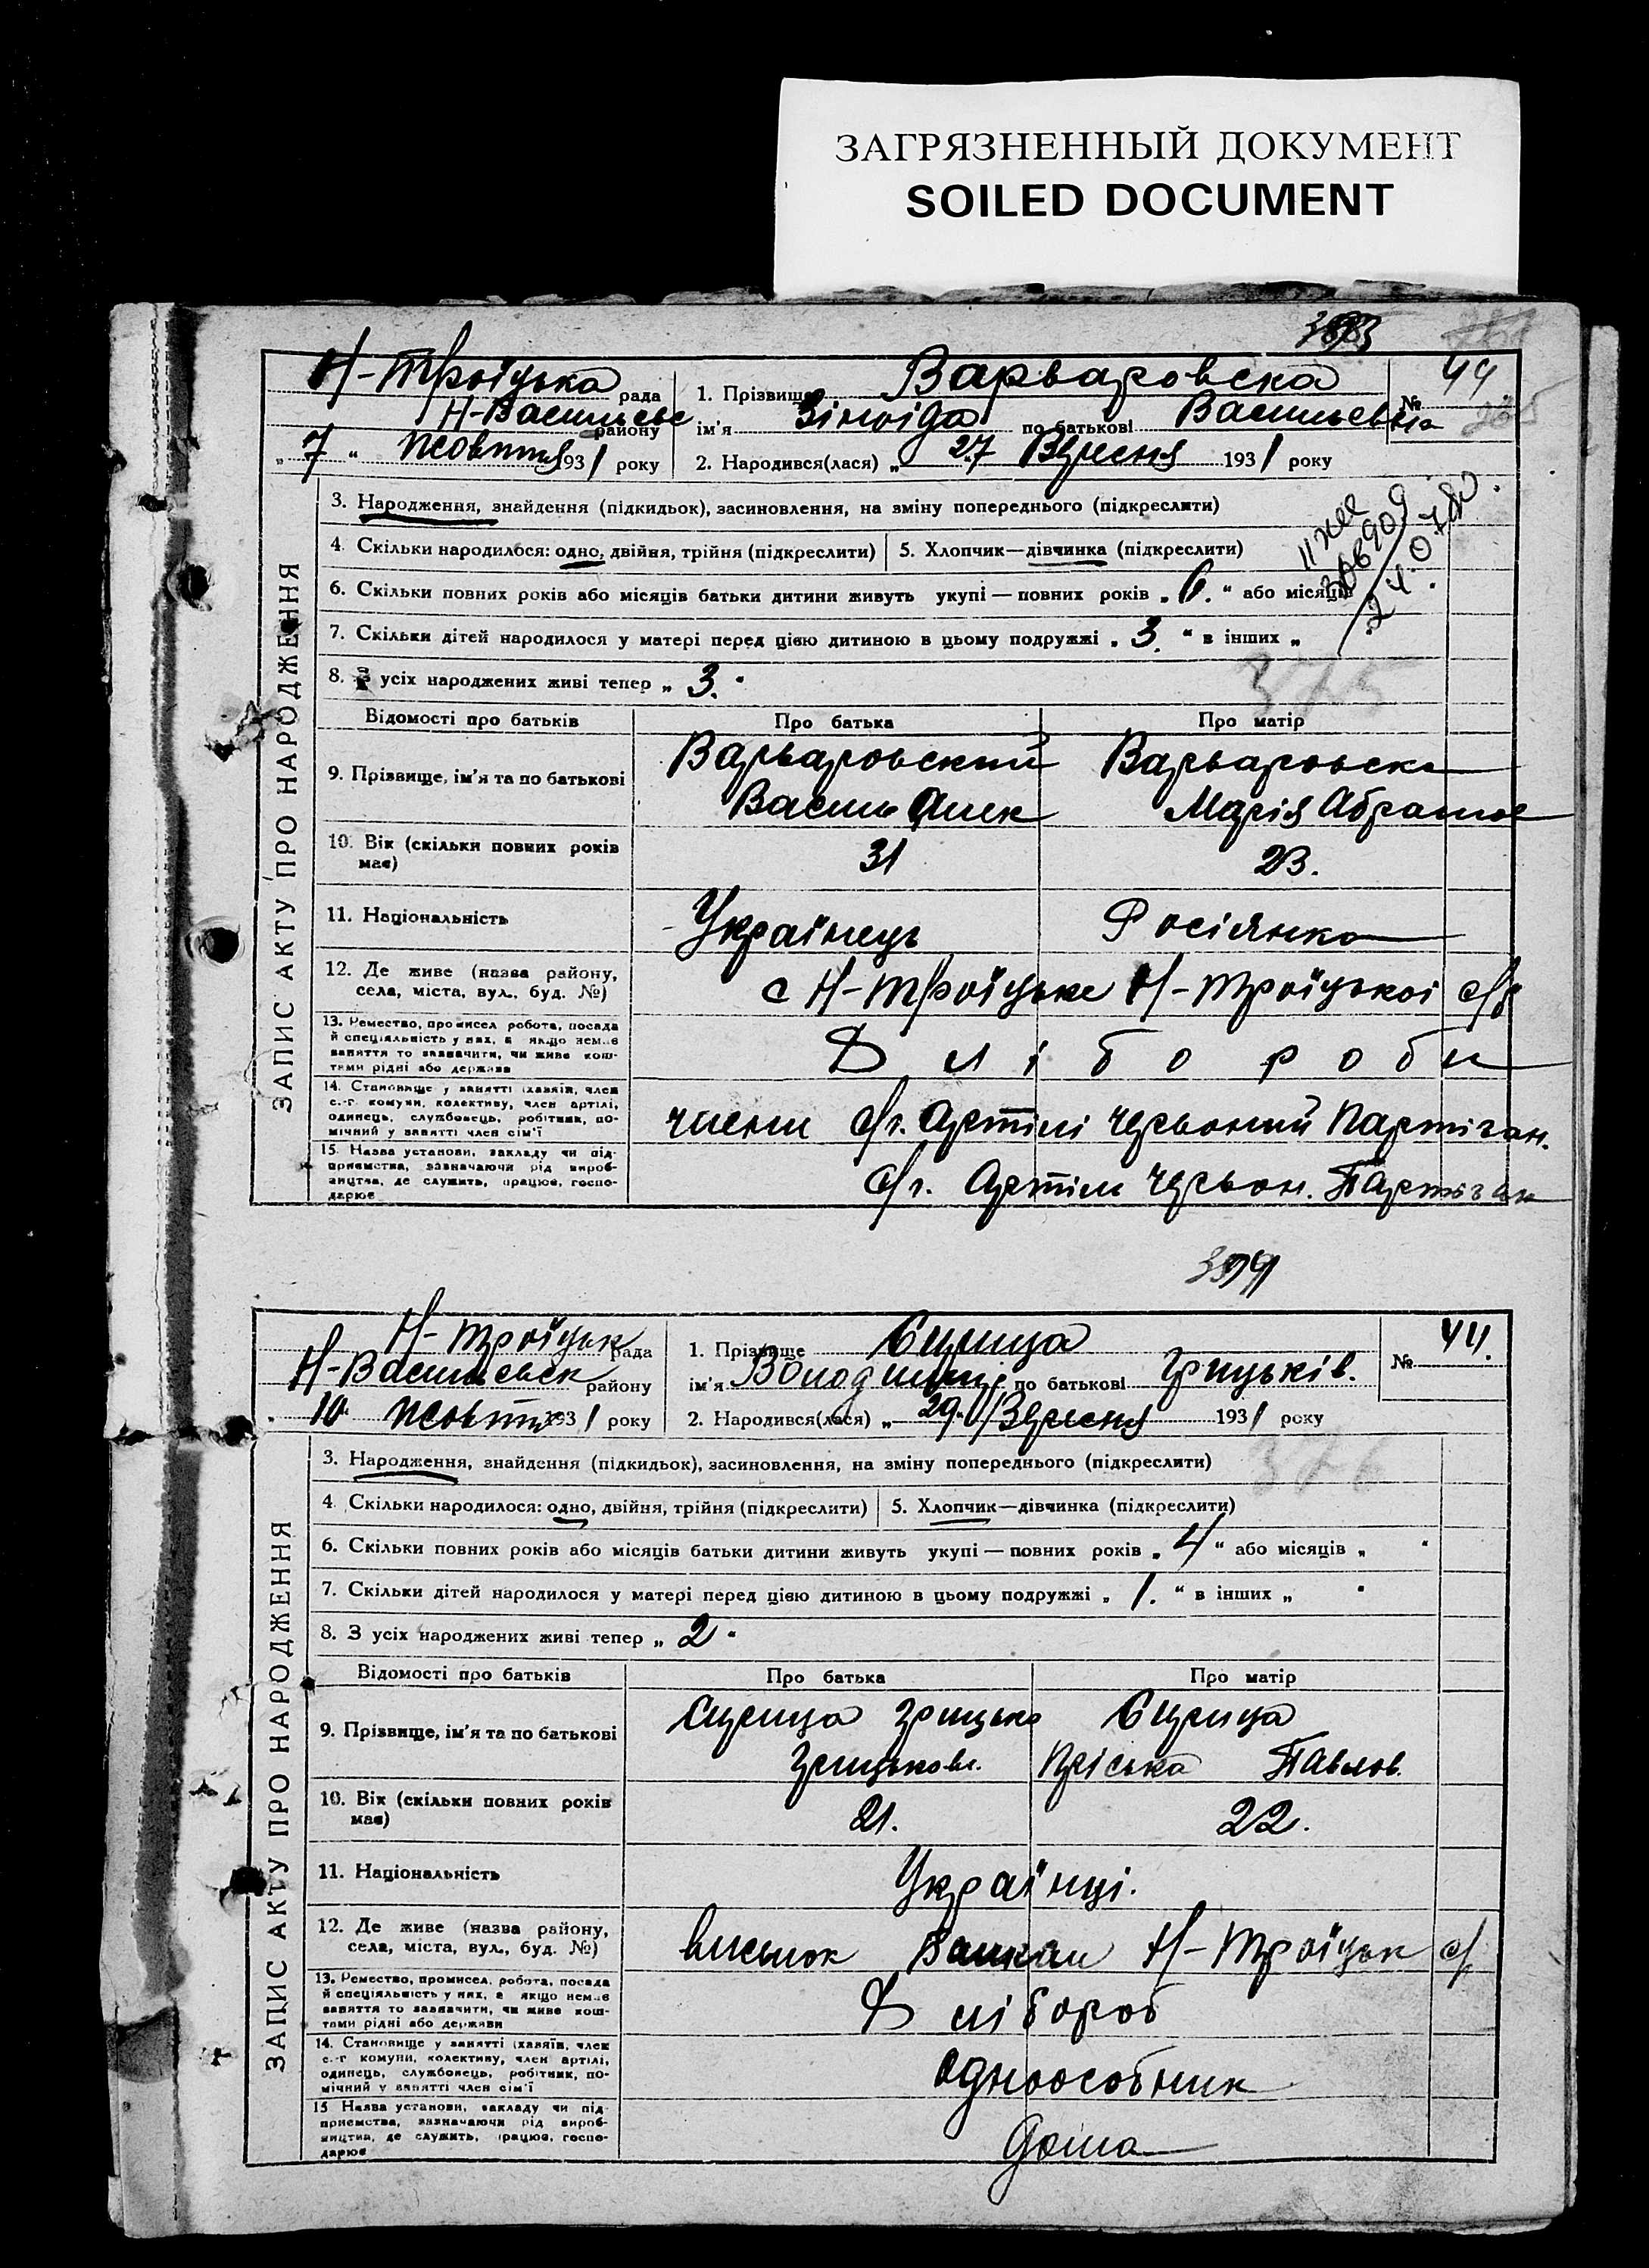 ЗАГРЯЗНЕННЫЙ ДОКУМЕНТ
SOILED DOCUMENT
Н-Троїцька рада
Н-Васильевс району
„ 7 “ жовтня 1931 року
1. Прізвище Варваровска
ім'я Зіноіда по батькові Васильевна
2. Народився(лася) „ 27 Вересня 1931 року
№ 44
ЗАПИС АКТУ ПРО НАРОДЖЕННЯ
3. Народження, знайдення (підкидьок), засиновлення, на зміну попереднього (підкреслити)
4. Скільки народилося: одно, двійня, трійня (підкреслити) 5. Хлопчик—дівчинка (підкреслити)
6. Скільки повних років або місяців батьки дитини живуть укупі — повних років „ 6. “ або місяців
7. Скільки дітей народилося у матері перед цією дитиною в цьому подружжі „ 3. “ в інших „
8. З усіх народжених живі тепер „ 3. “
375
Відомості про батьків Про батька Про матір
9. Прізвище, ім'я та по батькові Варваровский Варваровска
Василь Марія Абрамов
10. Вік (скільки повних років має) 31 23.
11. Національність Українець Росіянка
12. Де живе (назва району, села, міста, вул., буд. №) с Н-Троїцьке Н-Троїцькоі с/р
13. Ремество, промисел робота, посада й спеціяльність у них, а якщо немає заняття то зазначити, чи живе коштами рідні або держави Хлібороби
14. Становище у занятті (хазяїн, член с.-г комуни, колективу, член артілі, одинець, службовець, робітник, помічний у занятті член сім'ї члени с/г. Артілі Червоний Партізан.
15. Назва установи, закладу чи підприємства, зазначаючи рід виробництва, де служить, працює, господарює с/г. Артіль Червон. Партізан
Н-Троїцьк рада
Н-Васильевск району
„ 10 “ жовтн 1931 року
1. Прізвище Сириця
ім'я Володимир по батькові Грицьків.
2. Народився(лася) „ 29. Вересня 1931 року
№ 44.
ЗАПИС АКТУ ПРО НАРОДЖЕННЯ
3. Народження, знайдення (підкидьок), засиновлення, на зміну попереднього (підкреслити)
376
4. Скільки народилося: одно, двійня, трійня (підкреслити) 5. Хлопчик—дівчинка (підкреслити)
6. Скільки повних років або місяців батьки дитини живуть укупі — повних років „ 4 “ або місяців „ “
7. Скільки дітей народилося у матері перед цією дитиною в цьому подружжі „ 1. “ в інших „ “
8. З усіх народжених живі тепер „ 2 “
Відомості про батьків Про батька Про матір
9. Прізвище, ім'я та по батькові Сириця Грицько Сириця
Грицьков. Пріська Павлов.
10. Вік (скільки повних років має) 21. 22.
11. Національність Українці.
12. Де живе (назва району, села, міста, вул., буд. №) висилок Н-Троїцьк с/
13. Ремество, промисел, робота, посада й спеціяльність у них, а якщо немає заняття то зазначити, чи живе коштами рідні або держави Хлібороб
14. Становище у занятті (хазяїн, член с.-г комуни, колективу, член артілі, одинець, службовець, робітник, помічний у занятті член сім'ї одноособник
15 Назва установи, закладу чи підприємства, зазначаючи рід виробництва, де служить, працює, господарює дома